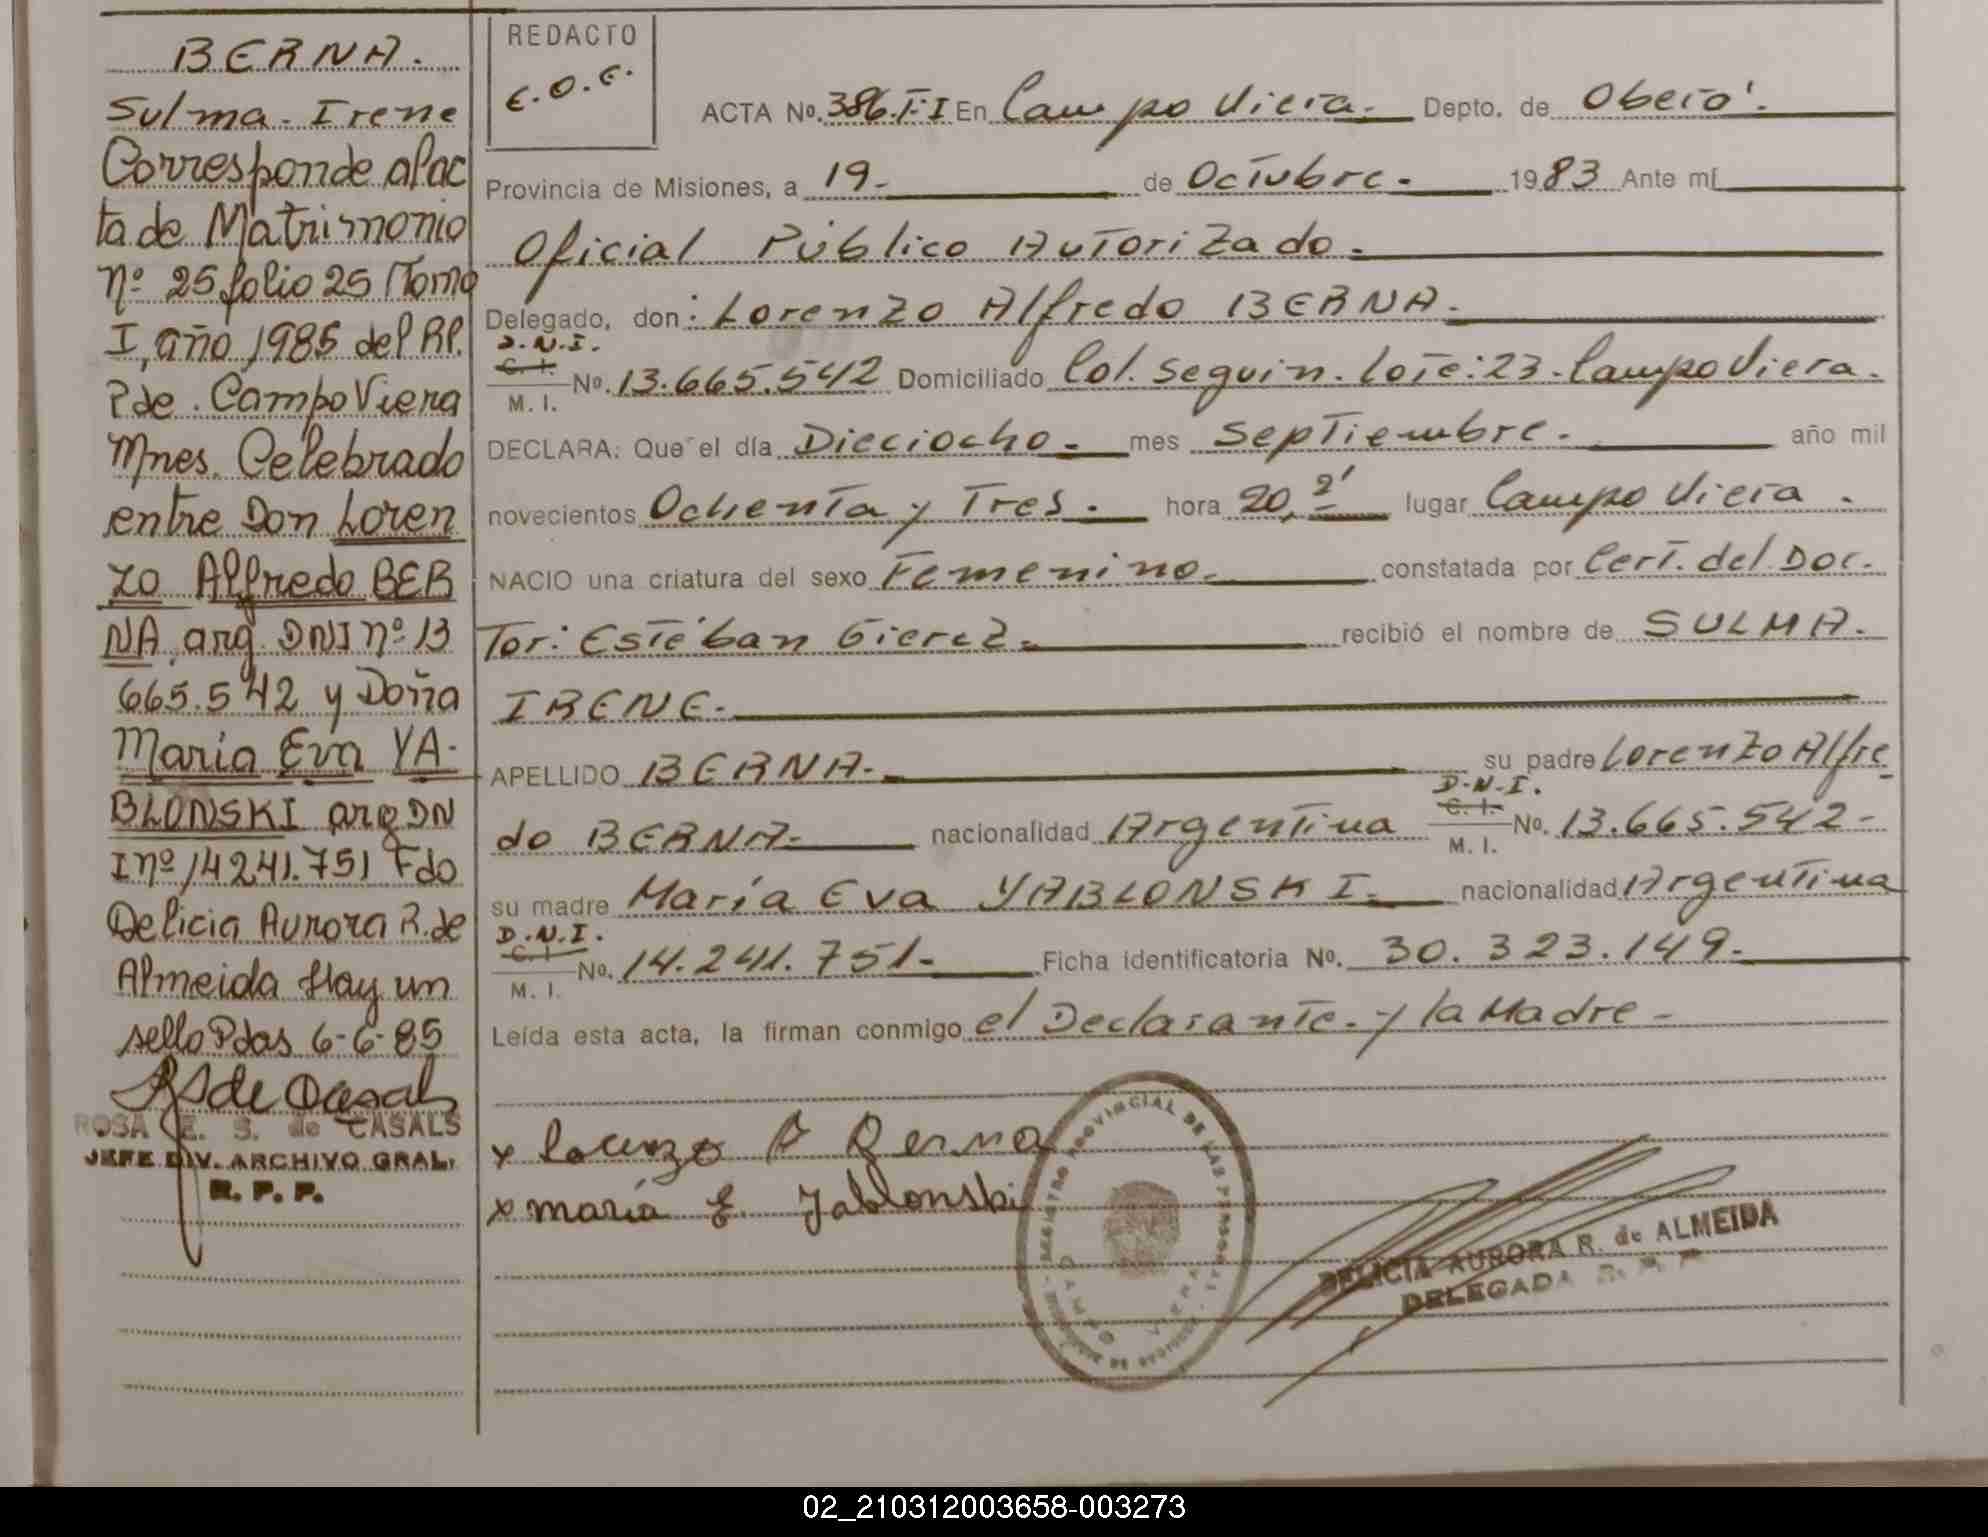 BERNA.
Sulma. Irene
Corresponde al ac
ta de Matrimonio
nº 25 folio 25 Tomo
I, año 1985 del R.P.
P de. Campo Viera
Mnes. Celebrado
entre Don Loren
zo Alfredo BER
NA, arg. DNI nº 13
665.542 y Doña
Maria Eva YA-
BLONSKI arg DN
I nº 14241.751 Fdo
Delicia Aurora R. de
Almeida Hay un
sello Pdas 6-6-85
ROSA E. S. de CASALS
JEFE DIV. ARCHIVO GRAL.
R. P. P.
REDACTO
E.O.E.
ACTA No. 386. T-I En Campo Viera. Depto. de Obera'.
Provincia de Misiones, a 19- de Octubre. 1983 Ante mí
Oficial Público Autorizado.
Delegado, don: Lorenzo Alfredo BERNA.
D.N.I.
C. I.
M. I. No. 13.665.542 Domiciliado Col. Seguin. Lote: 23. Campo Viera.
DECLARA: Que el día Dieciocho. mes Septiembre. año mil
novecientos Ochenta y Tres. hora 20,2' lugar Campo Viera.
NACIO una criatura del sexo Femenino. constatada por Cert. del Doc.
Tor: Estéban Gierez. recibió el nombre de SULMA.
IRENE.
APELLIDO BERNA. su padre Lorenzo Alfre
do BERNA. nacionalidad Argentina D.N.I. C. I. M. I. No. 13.665.542-
su madre María Eva YABLONSKI. nacionalidad Argentina
D.N.I.
C. I.
M. I. No. 14.241.751- Ficha identificatoria No. 30.323.149-
Leída esta acta, la firman conmigo el Declarante. y la Madre-
x Lorenzo A Berna
x maría E. Yablonski
REGISTRO PROVINCIAL DE LAS PERSONAS
CAMPO VIERA
DELICIA AURORA R. de ALMEIDA
DELEGADA R. P. P.
02_210312003658-003273